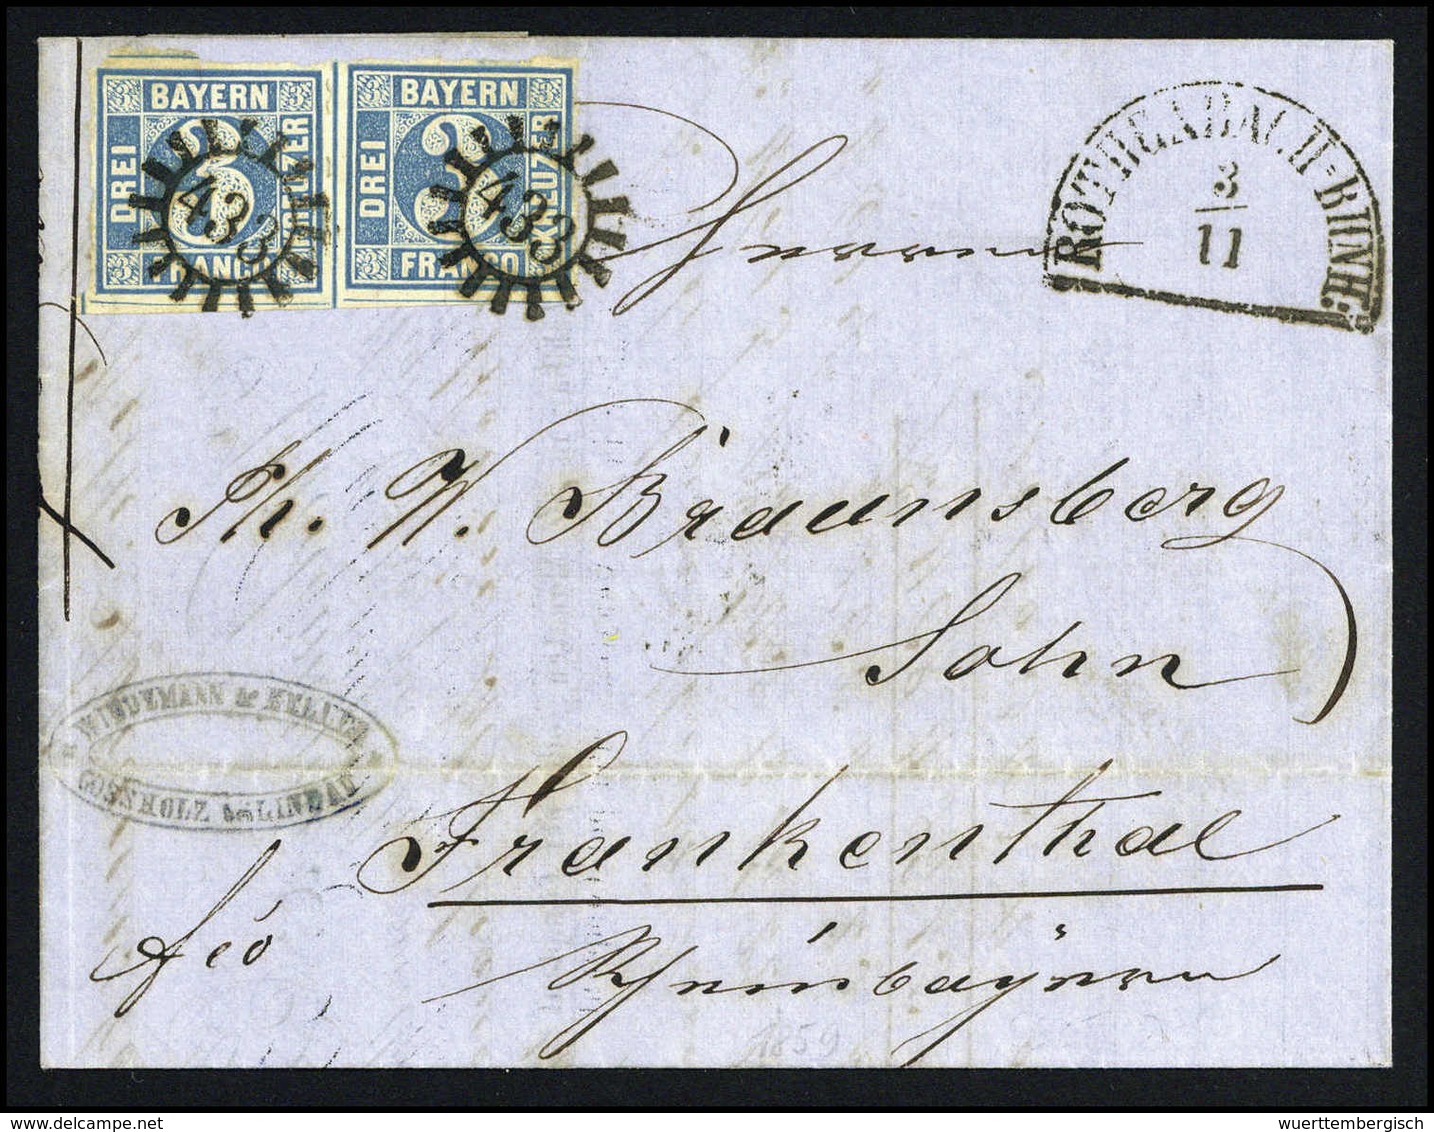 BAYERN
DREI
KREUZER
FRANCO
3
433
BAYERN
DREI
KREUZER
FRANCO
3
433
ROTHENBACH-BHNH.
3
11
Herrn
Ph. W. Braunsberg
Sohn
Frankenthal
Rheinbayern
feo
& KELLER
GOSSHOLZ bei LINDAU
1859
wuerttembergisch